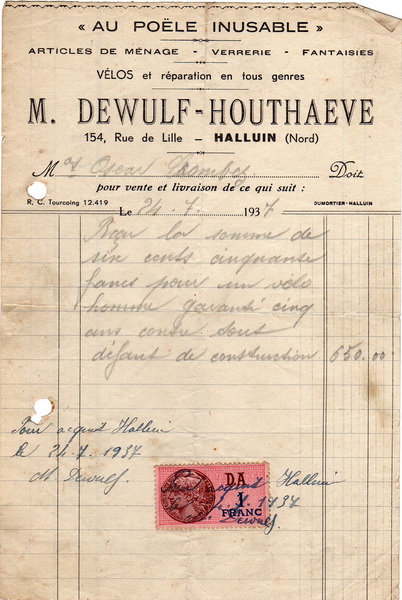 « AU POËLE INUSABLE »
ARTICLES DE MÉNAGE - VERRERIE - FANTAISIES
VÉLOS et réparation en tous genres
M. DEWULF-HOUTHAEVE
154, Rue de Lille — HALLUIN (Nord)
M r Oscar Doit
pour vente et livraison de ce qui suit :
R. C. Tourcoing 12.419
Le 24. 7. 1937
DUMORTIER-HALLUIN
la somme de
six cents cinquante
pour un vélo
homme garanti cinq
ans contre tous
défaut de construction 650.00
Pour acquit Halluin
le 24.7.1937
M Dewulf
DA
1
FRANC
acquit Halluin
7. 1937
Dewulf